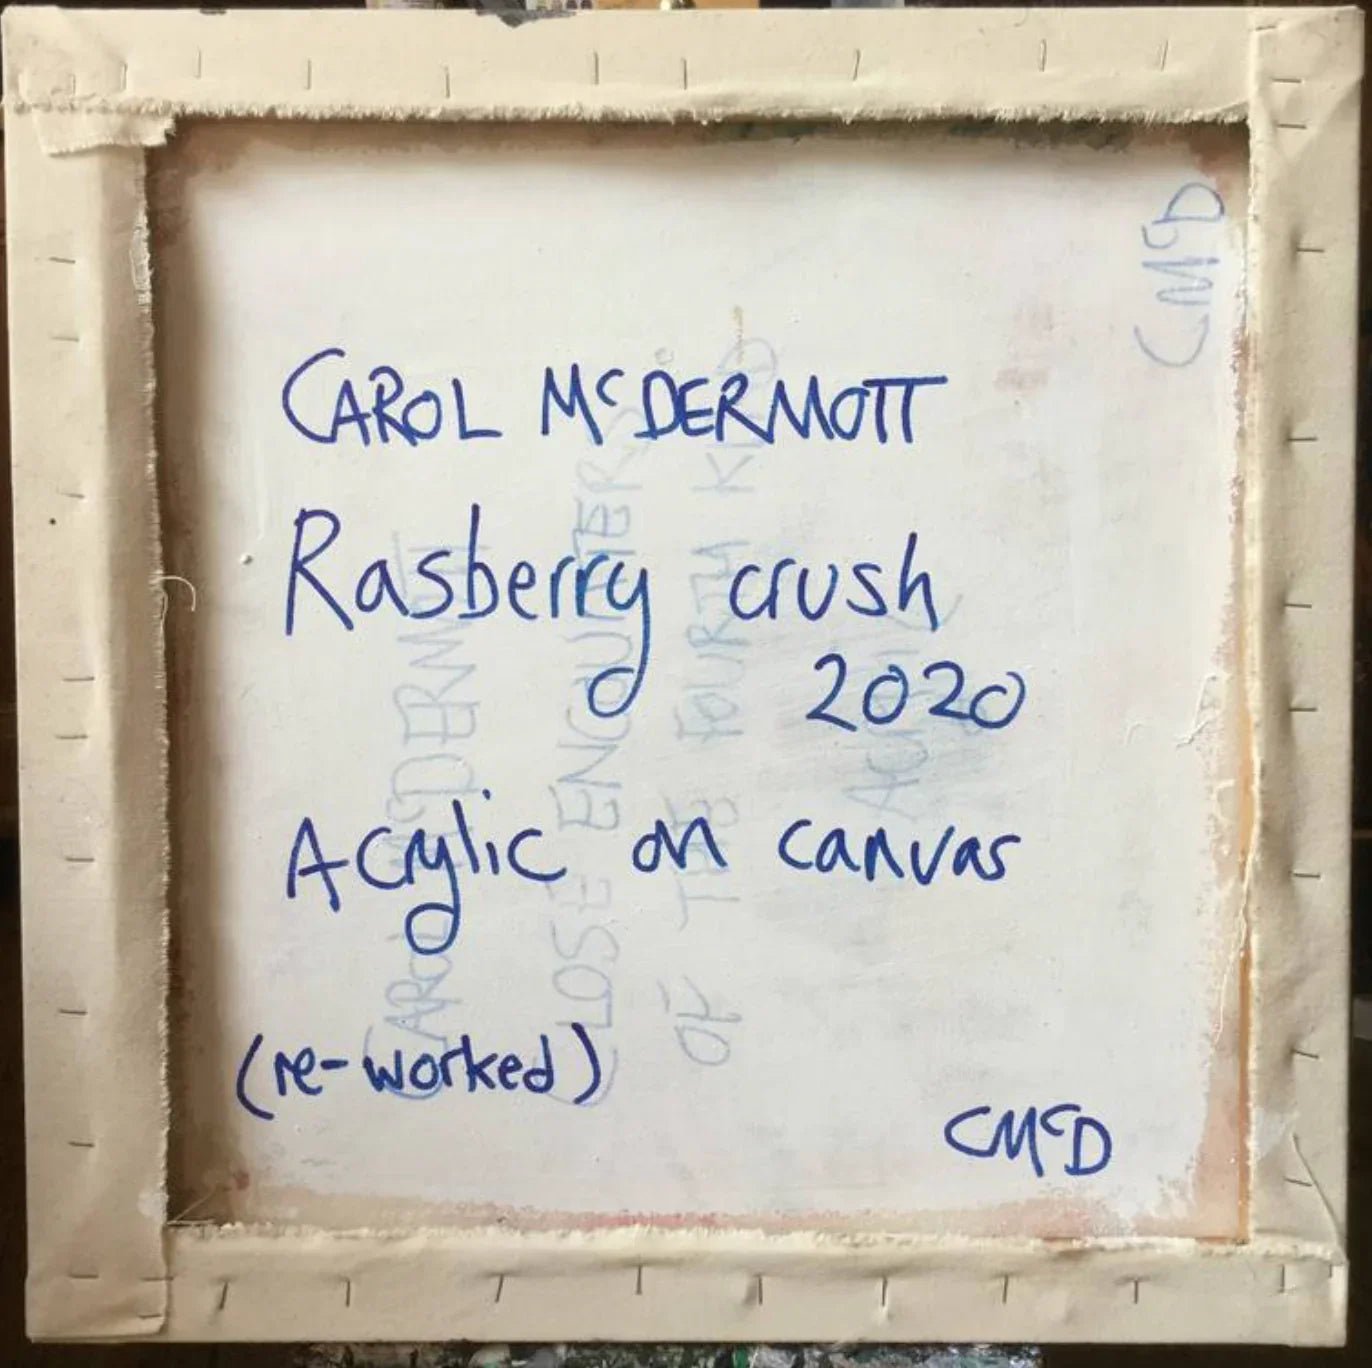 CAROL McDERMOTT
Rasberry crush
2020
Acrylic on canvas
(re-worked)
CMcD
CMcD
CAROL McDERMOTT
CLOSE ENCOUNTERS
OF THE FOURTH KIND